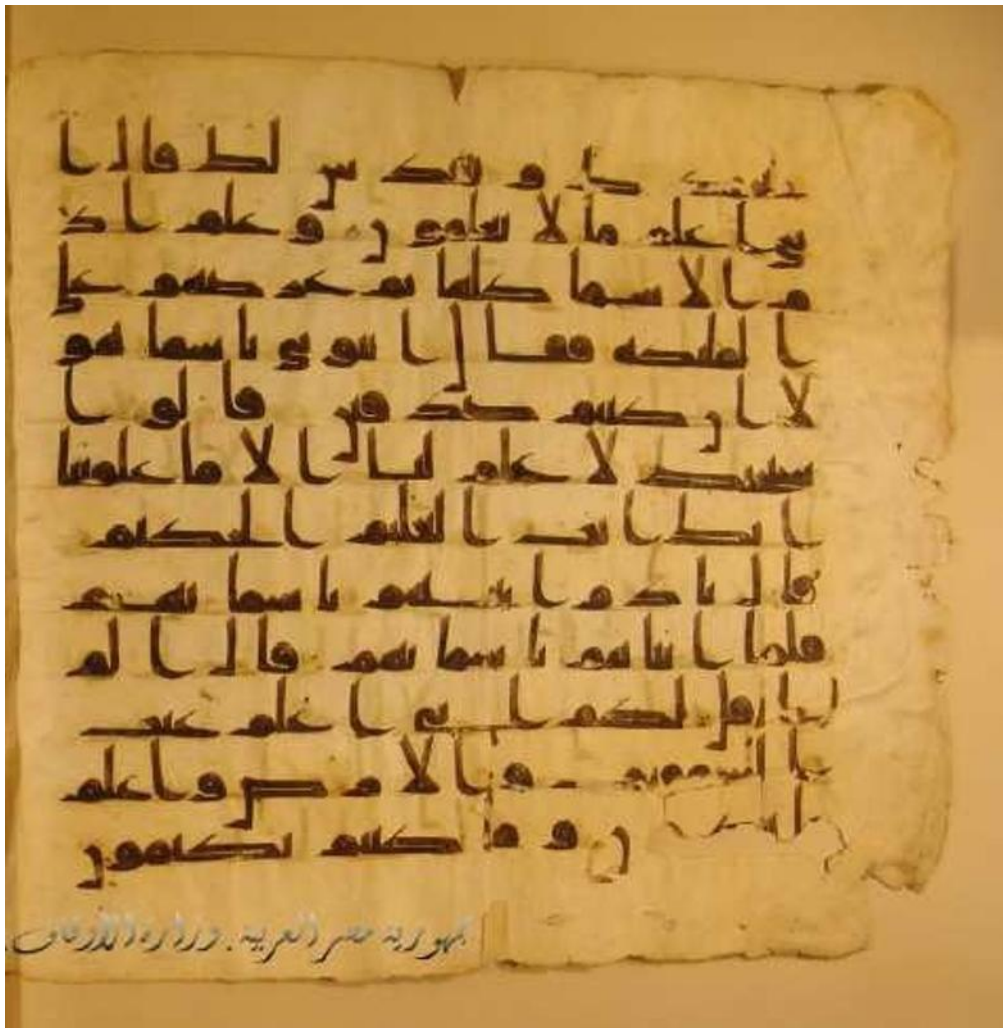 بحمدك و نقدس لك قال ا
ني اعلم ما لا تعلمون و علم اد
م الاسما كلها ثم عرضهم على
الملئكه فقال انبوني باسما هو
لا ان كنتم صدقين قالوا
سبحنك لا علم لنا الا ما علمتنا
انك انت العليم الحكيم
قال يادم انبيهم باسمايهم
فلما انباهم باسمايهم قال الم
اقل لكم اني اعلم غيب
السموت والارض واعلم
ن و ما كنتم تكتمون
جمهورية مصر العربية . وزارة الأوقاف .